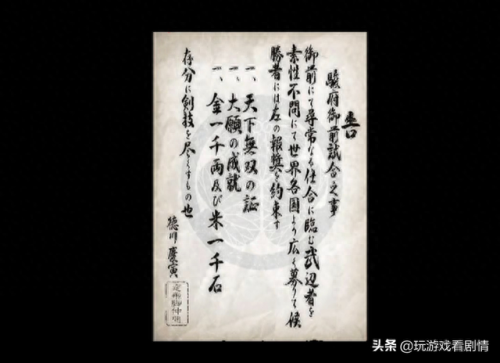 告
駿府御前試合之事
御前にて尋常なる仕合に臨む武辺者を
素性不問にて世界各国より広く募りて候
勝者には左の報奨を約束す
一、天下無双の証
一、大願の成就
一、金一千両及び米一千石
存分に剣技を尽くすもの也
徳川慶寅
头条 @玩游戏看剧情